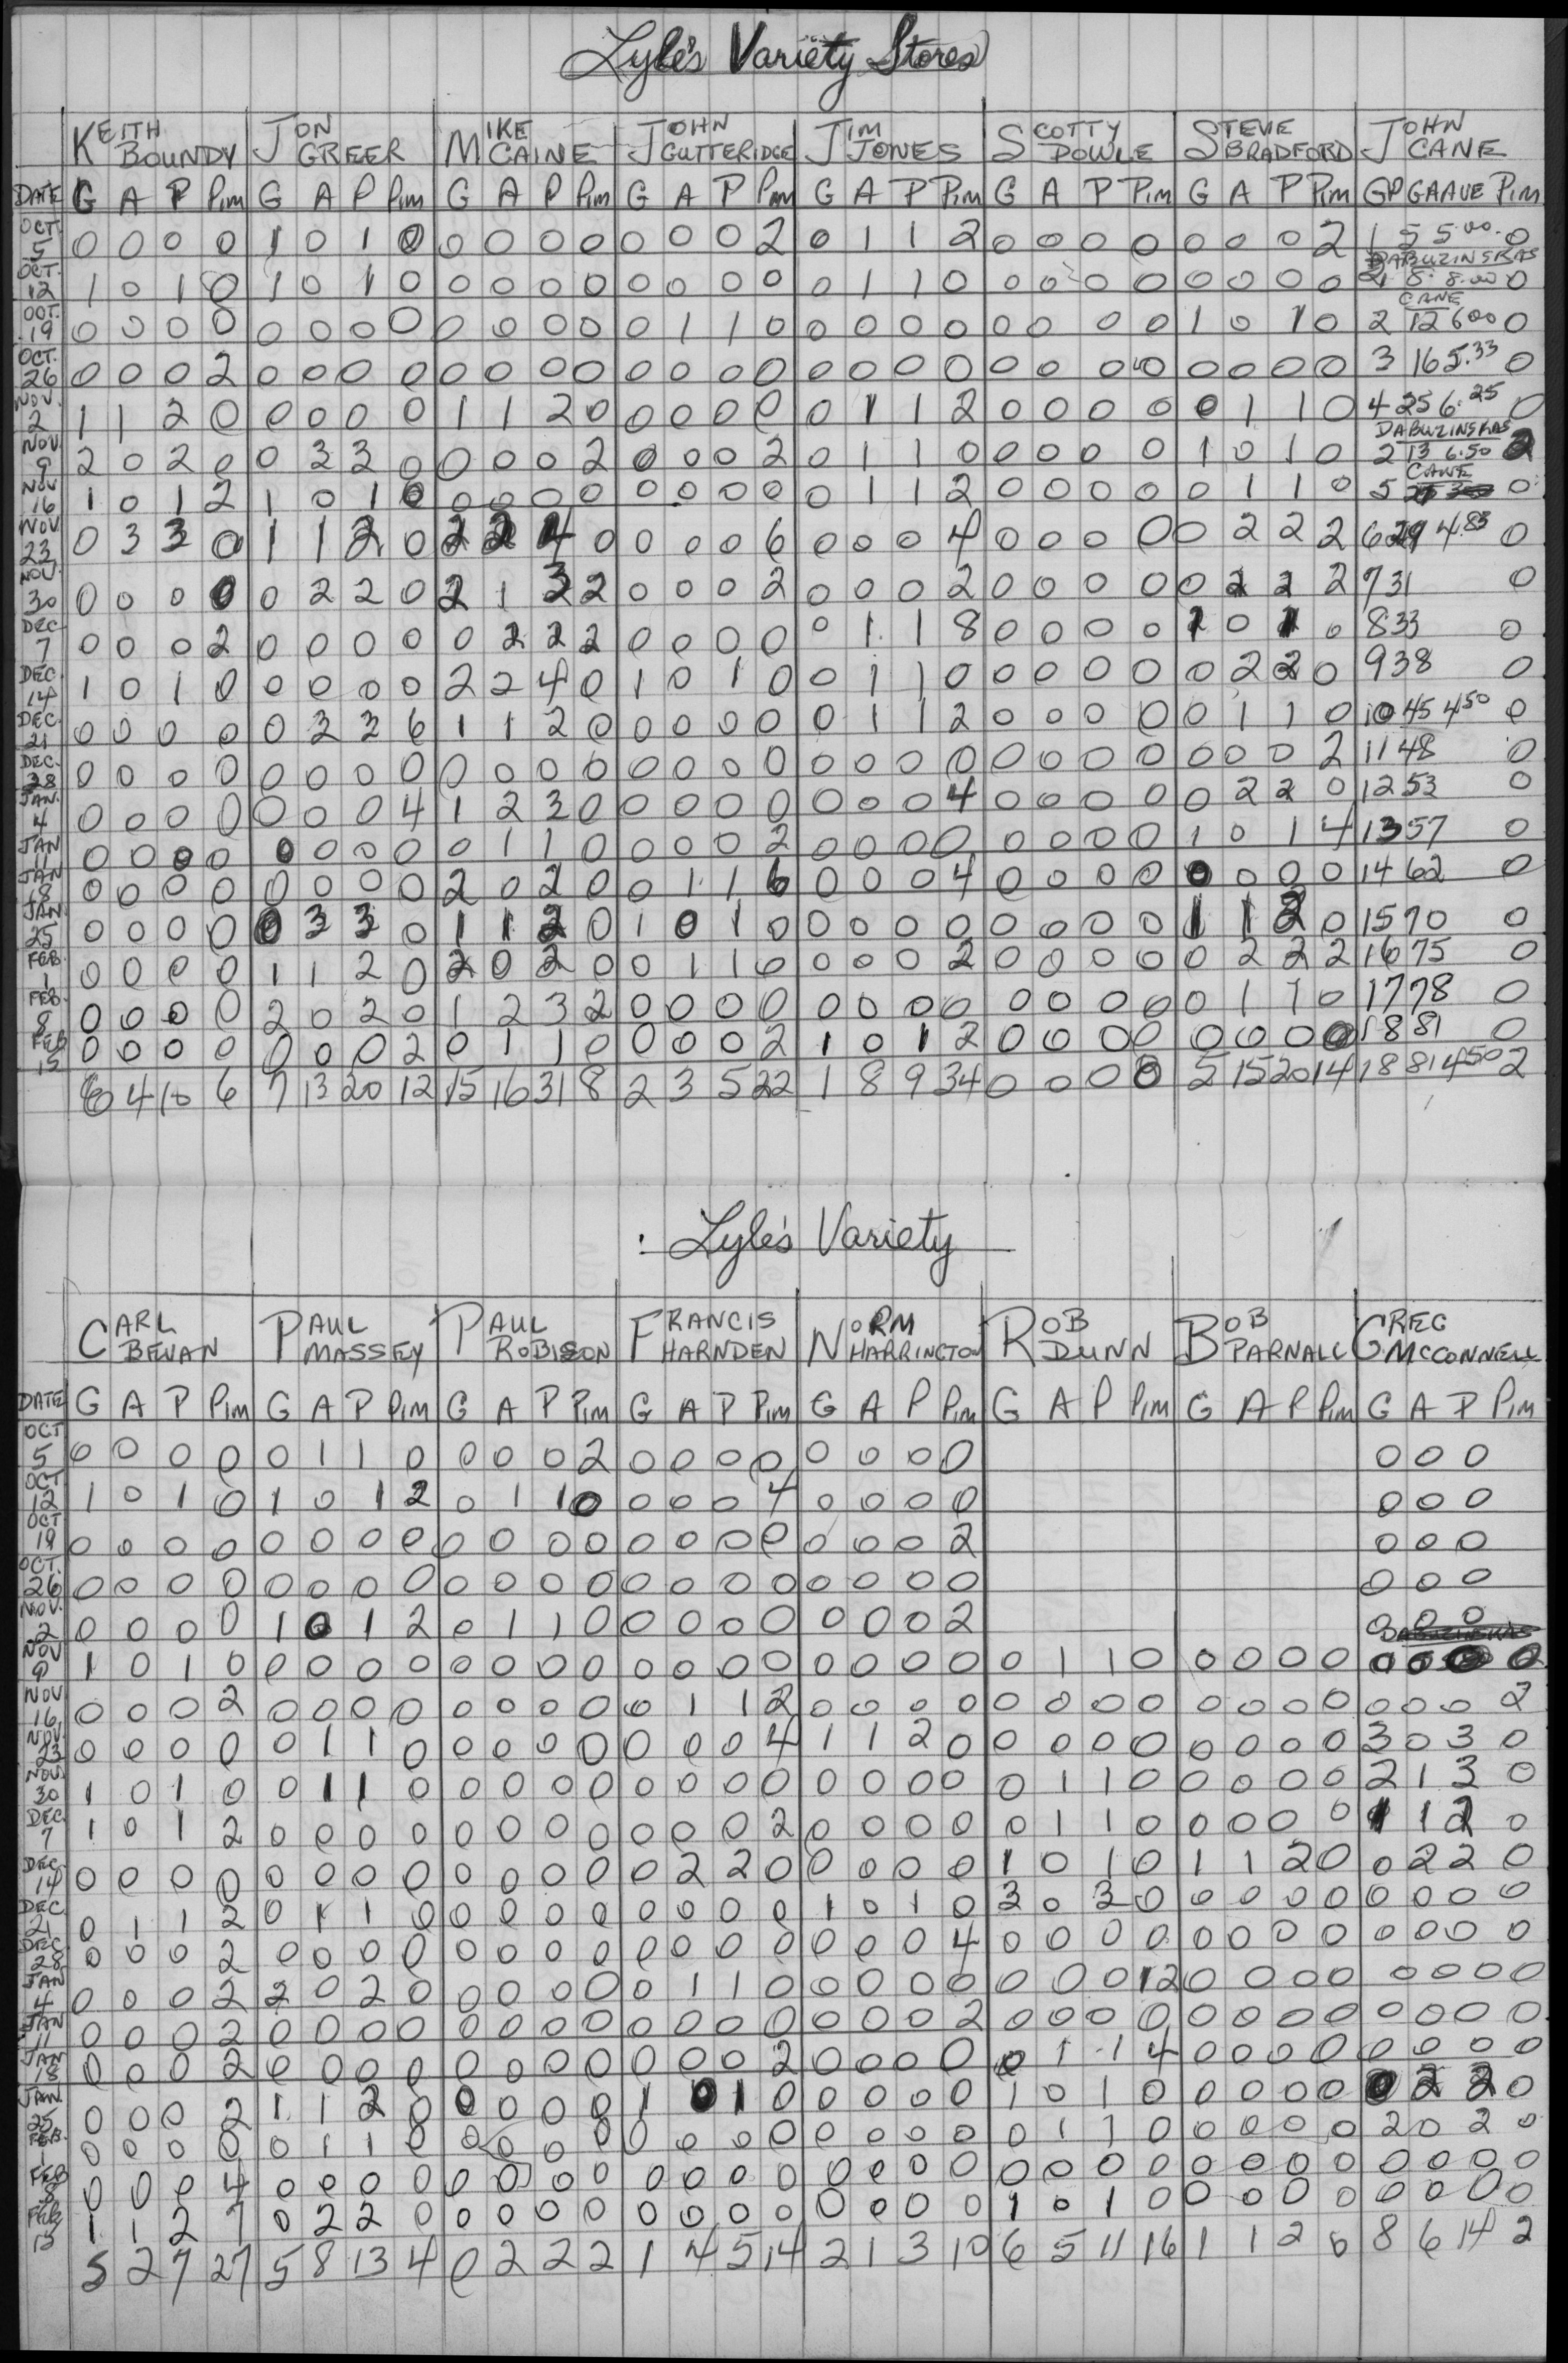 Lyle's Variety Stores
KEITH BOUNDY JON GREER MIKE CAINE JOHN GUTTERIDGE JIM JONES SCOTTY DOWLE STEVIE BRADFORD JOHN CANE
DATE G A P Pim G A P Pim G A P Pim G A P Pim G A P Pim G A P Pim G A P Pim GP GA AVE Pim
OCT. 5 0 0 0 0 1 0 1 0 0 0 0 0 0 0 0 2 0 1 1 2 0 0 0 0 0 0 0 2 1 5 5.00 0
DABUZINSKAS
OCT. 12 1 0 1 0 1 0 1 0 0 0 0 0 0 0 0 0 0 1 1 0 0 0 0 0 0 0 0 0 8 8.00 0
CANE
OCT. 19 0 0 0 0 0 0 0 0 0 0 0 0 0 1 1 0 0 0 0 0 0 0 0 0 1 0 1 0 2 12 600 0
OCT. 26 0 0 0 2 0 0 0 0 0 0 0 0 0 0 0 0 0 0 0 0 0 0 0 0 0 0 0 0 3 16 5.33 0
NOV. 2 1 1 2 0 0 0 0 0 1 1 2 0 0 0 0 0 0 1 1 2 0 0 0 0 0 1 1 0 4 25 6.25 0
DABUZINSKAS
NOV. 9 2 0 2 0 0 3 3 0 0 0 0 2 0 0 0 2 0 1 1 0 0 0 0 0 1 0 1 0 2 13 6.50 2
CANE
NOV 16 1 0 1 2 1 0 1 0 0 0 0 0 0 0 0 0 0 1 1 2 0 0 0 0 0 1 1 0 5 0
NOV. 23 0 3 3 0 1 1 2 0 2 2 4 0 0 0 0 6 0 0 0 4 0 0 0 0 0 2 2 2 6 29 4.83 0
NOV. 30 0 0 0 0 0 2 2 0 2 1 3 2 0 0 0 2 0 0 0 2 0 0 0 0 0 2 2 2 7 31 0
DEC 7 0 0 0 2 0 0 0 0 0 2 2 2 0 0 0 0 0 1 1 8 0 0 0 0 1 0 1 0 8 33 0
DEC. 14 1 0 1 0 0 0 0 0 2 2 4 0 1 0 1 0 0 1 1 0 0 0 0 0 0 2 2 0 9 38 0
DEC. 21 0 0 0 0 0 3 3 6 1 1 2 0 0 0 0 0 0 1 1 2 0 0 0 0 0 1 1 0 10 45 450 0
DEC. 28 0 0 0 0 0 0 0 0 0 0 0 0 0 0 0 0 0 0 0 0 0 0 0 0 0 0 0 2 11 48 0
JAN. 4 0 0 0 0 0 0 0 4 1 2 3 0 0 0 0 0 0 0 0 4 0 0 0 0 0 2 2 0 12 53 0
JAN 11 0 0 0 0 0 0 0 0 0 1 1 0 0 0 0 2 0 0 0 0 0 0 0 0 1 0 1 4 13 57 0
JAN 18 0 0 0 0 0 0 0 0 2 0 2 0 0 1 1 6 0 0 0 4 0 0 0 0 0 0 0 0 14 62 0
JAN 25 0 0 0 0 0 3 3 0 1 1 2 0 1 0 1 0 0 0 0 0 0 0 0 0 1 1 2 0 15 70 0
FEB. 1 0 0 0 0 1 1 2 0 2 0 2 0 0 1 1 0 0 0 0 2 0 0 0 0 0 2 2 2 16 75 0
FEB. 8 0 0 0 0 2 0 2 0 1 2 3 2 0 0 0 0 0 0 0 0 0 0 0 0 0 1 1 0 17 78 0
FEB 15 0 0 0 0 0 0 0 2 0 1 1 0 0 0 0 2 1 0 1 2 0 0 0 0 0 0 0 0 18 81 0
6 4 10 6 7 13 20 12 15 16 31 8 2 3 5 22 1 8 9 34 0 0 0 0 5 15 20 14 18 81 450 2
Lyle's Variety
CARL BEVAN PAUL MASSEY PAUL ROBISON FRANCIS HARNDEN NORM HARRINGTON ROB DUNN BOB PARNALL GREG MCCONNELL
DATE G A P Pim G A P Pim G A P Pim G A P Pim G A P Pim G A P Pim G A P Pim G A P Pim
OCT 5 0 0 0 0 0 1 1 0 0 0 0 2 0 0 0 0 0 0 0 0 0 0 0
OCT 12 1 0 1 0 1 0 1 2 0 1 1 0 0 0 0 4 0 0 0 0 0 0 0
OCT 19 0 0 0 0 0 0 0 0 0 0 0 0 0 0 0 0 0 0 0 2 0 0 0
OCT. 26 0 0 0 0 0 0 0 0 0 0 0 0 0 0 0 0 0 0 0 0 0 0 0
NOV. 2 0 0 0 0 1 0 1 2 0 1 1 0 0 0 0 0 0 0 0 2 0 0 0
DABUZINSKAS
NOV 9 1 0 1 0 0 0 0 0 0 0 0 0 0 0 0 0 0 0 0 0 0 1 1 0 0 0 0 0 0 0 0 0
NOV 16 0 0 0 2 0 0 0 0 0 0 0 0 0 1 1 2 0 0 0 0 0 0 0 0 0 0 0 0 0 0 0 2
NOV. 23 0 0 0 0 0 1 1 0 0 0 0 0 0 0 0 4 1 1 2 0 0 0 0 0 0 0 0 0 3 0 3 0
NOV. 30 1 0 1 0 0 1 1 0 0 0 0 0 0 0 0 0 0 0 0 0 0 1 1 0 0 0 0 0 2 1 3 0
DEC 7 1 0 1 2 0 0 0 0 0 0 0 0 0 0 0 2 0 0 0 0 0 1 1 0 0 0 0 0 1 1 2 0
DEC. 14 0 0 0 0 0 0 0 0 0 0 0 0 0 2 2 0 0 0 0 0 1 0 1 0 1 1 2 0 0 2 2 0
DEC 21 0 1 1 2 0 1 1 0 0 0 0 0 0 0 0 0 1 0 1 0 3 0 3 0 0 0 0 0 0 0 0 0
DEC 28 0 0 0 2 0 0 0 0 0 0 0 0 0 0 0 0 0 0 0 4 0 0 0 0 0 0 0 0 0 0 0 0
JAN 4 0 0 0 2 2 0 2 0 0 0 0 0 0 1 1 0 0 0 0 0 0 0 0 12 0 0 0 0 0 0 0 0
JAN 11 0 0 0 2 0 0 0 0 0 0 0 0 0 0 0 0 0 0 0 2 0 0 0 0 0 0 0 0 0 0 0 0
JAN 18 0 0 0 2 0 0 0 0 0 0 0 0 0 0 0 2 0 0 0 0 0 1 1 4 0 0 0 0 0 0 0 0
JAN. 25 0 0 0 2 1 1 2 0 0 0 0 0 1 0 1 0 0 0 0 0 1 0 1 0 0 0 0 0 0 2 2 0
FEB. 1 0 0 0 0 0 1 1 0 0 0 0 0 0 0 0 0 0 0 0 0 0 1 1 0 0 0 0 0 2 0 2 0
FEB 8 0 0 0 4 0 0 0 0 0 0 0 0 0 0 0 0 0 0 0 0 0 0 0 0 0 0 0 0 0 0 0 0
FEB 15 1 1 2 7 0 2 2 0 0 0 0 0 0 0 0 0 0 0 0 0 1 0 1 0 0 0 0 0 0 0 0 0
5 2 7 27 5 8 13 4 0 2 2 2 1 4 5 14 2 1 3 10 6 5 11 16 1 1 2 0 8 6 14 2